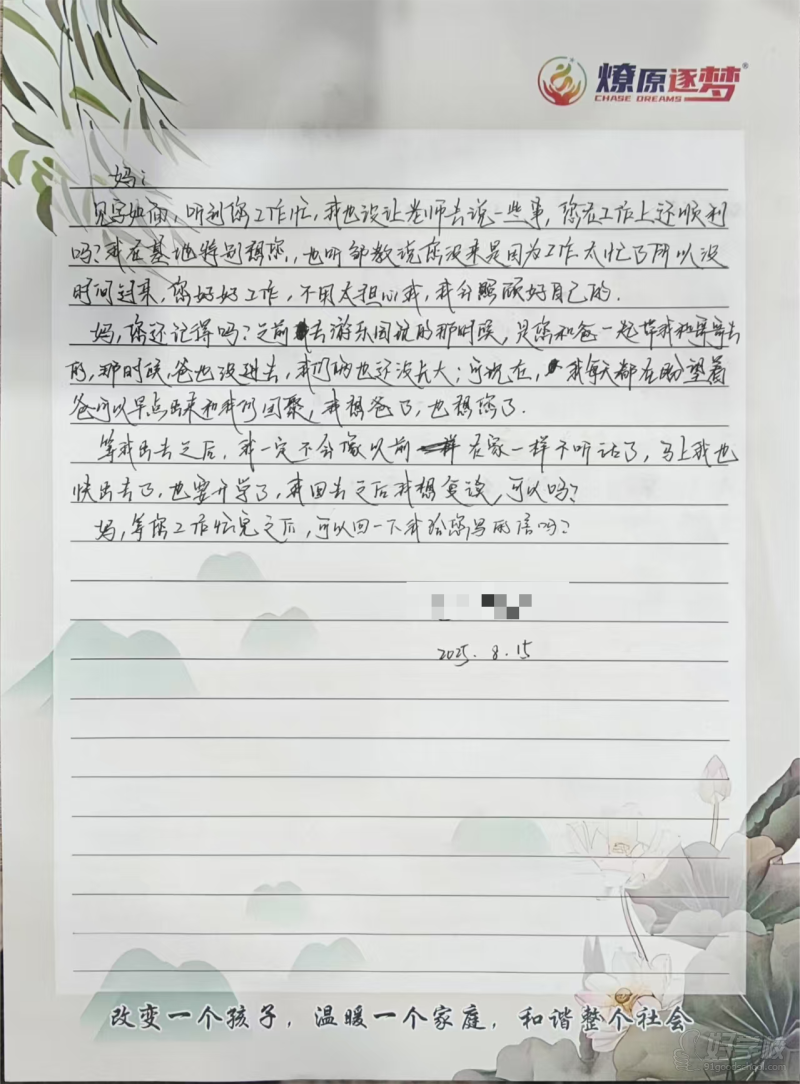 燎原逐梦®
CHASE DREAMS
妈：
见字如面，听到您工作忙，我也没让老师去说一些事，您在工作上还顺利
吗？我在基地特别想您，也听邹教说您没来是因为工作太忙了所以没
时间过来，您好好工作，不用太担心我，我会照顾好自己的．
妈，您还记得吗？之前去游乐园玩的那时候，是您和爸一起带我和哥哥去
的，那时候，爸也没进去，我们俩也还没长大；可现在，我每天都在盼望着
爸可以早点出来和我们团聚，我想爸了，也想您了．
等我出去之后，我一定不会像以前在家一样不听话了，马上我也
快出去了，也要开学了，我回去之后我想复读，可以吗？
妈，等您工作忙完之后，可以回一下我给您写的信吗？
2025．8．15
改变一个孩子，温暖一个家庭，和谐整个社会
91goodschool.com